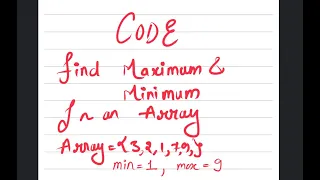 CODE
find Maximum &
Minimum
In an Array
Array = {3, 2, 1, 7, 9, }
min = 1 , max = 9